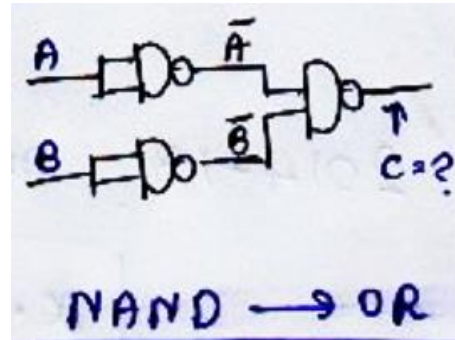 A
A̅
B
B̅
C=?
NAND → OR